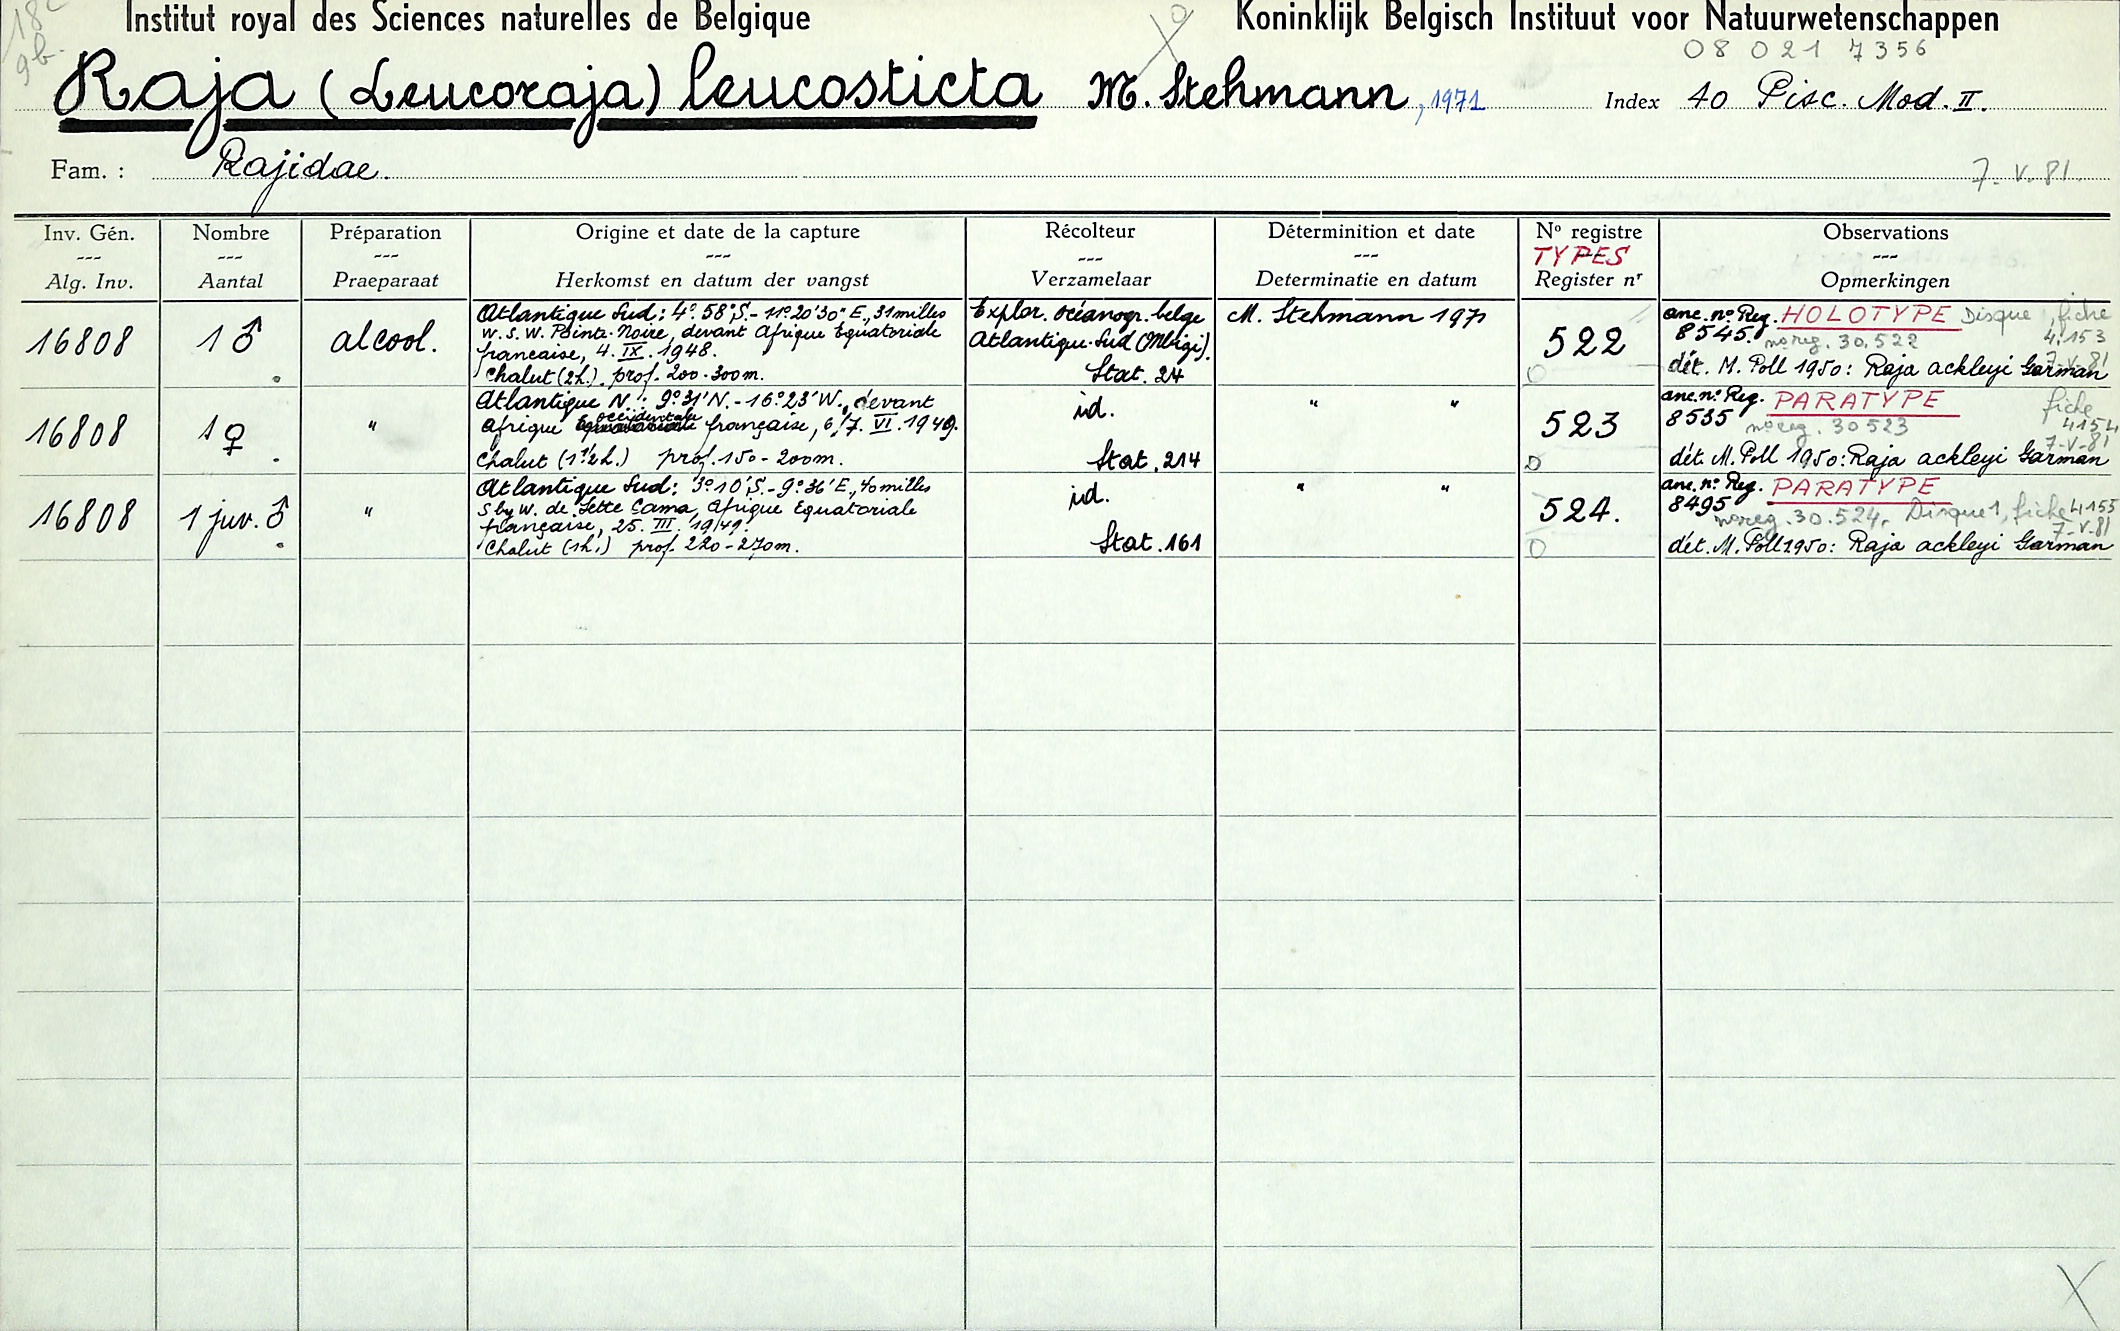 18c
9b.
Institut royal des Sciences naturelles de Belgique
Koninklijk Belgisch Instituut voor Natuurwetenschappen
08 021 7356
Raja (Leucoraja) leucosticta M. Stehmann, 1971
Index 40 Pisc. Mod. II.
Fam. : Rajidae.
7. V. 81.
Inv. Gén.
---
Alg. Inv.
Nombre
---
Aantal
Préparation
---
Praeparaat
Origine et date de la capture
---
Herkomst en datum der vangst
Récolteur
---
Verzamelaar
Déterminition et date
---
Determinatie en datum
No registre
TYPES
Register nr
Observations
---
Opmerkingen
16808
1 ♂
alcool.
Atlantique Sud: 4° 58' S. - 11° 20' 30" E., 31 milles
W. S. W. Pointe-Noire, devant Afrique Equatoriale
française, 4. IX. 1948.
Chalut (2h.). prof. 200-300m.
Explor. océanogr. belge
Atlantique-Sud (Mbizi).
Stat. 24
M. Stehmann 1971
522
anc. no Reg. HOLOTYPE Disque 1, fiche
8545. no reg. 30.522 4153
7-V-81
dét. M. Poll 1950: Raja ackleyi Garman
16808
1 ♀
"
Atlantique N.: 9° 31' N. - 16° 23' W., devant
occidentale
Afrique française, 6/7. VI. 1949.
Chalut (1 1/2 h.) prof. 150-200m.
id.
Stat. 214
" "
523
anc. no Reg. PARATYPE fiche
8535 no reg. 30523 4154
7-V-81
dét. M. Poll 1950: Raja ackleyi Garman
16808
1 juv. ♂
"
Atlantique Sud: 3° 10' S. - 9° 36' E., 40 milles
S by W. de Sette Cama, Afrique Equatoriale
française, 25. III. 1949.
Chalut (1h.) prof. 220-270m.
id.
Stat. 161
" "
524.
anc. no Reg. PARATYPE
8495 no reg. 30.524. Disque 1, fiche 4155
7-V-81
dét. M. Poll 1950: Raja ackleyi Garman